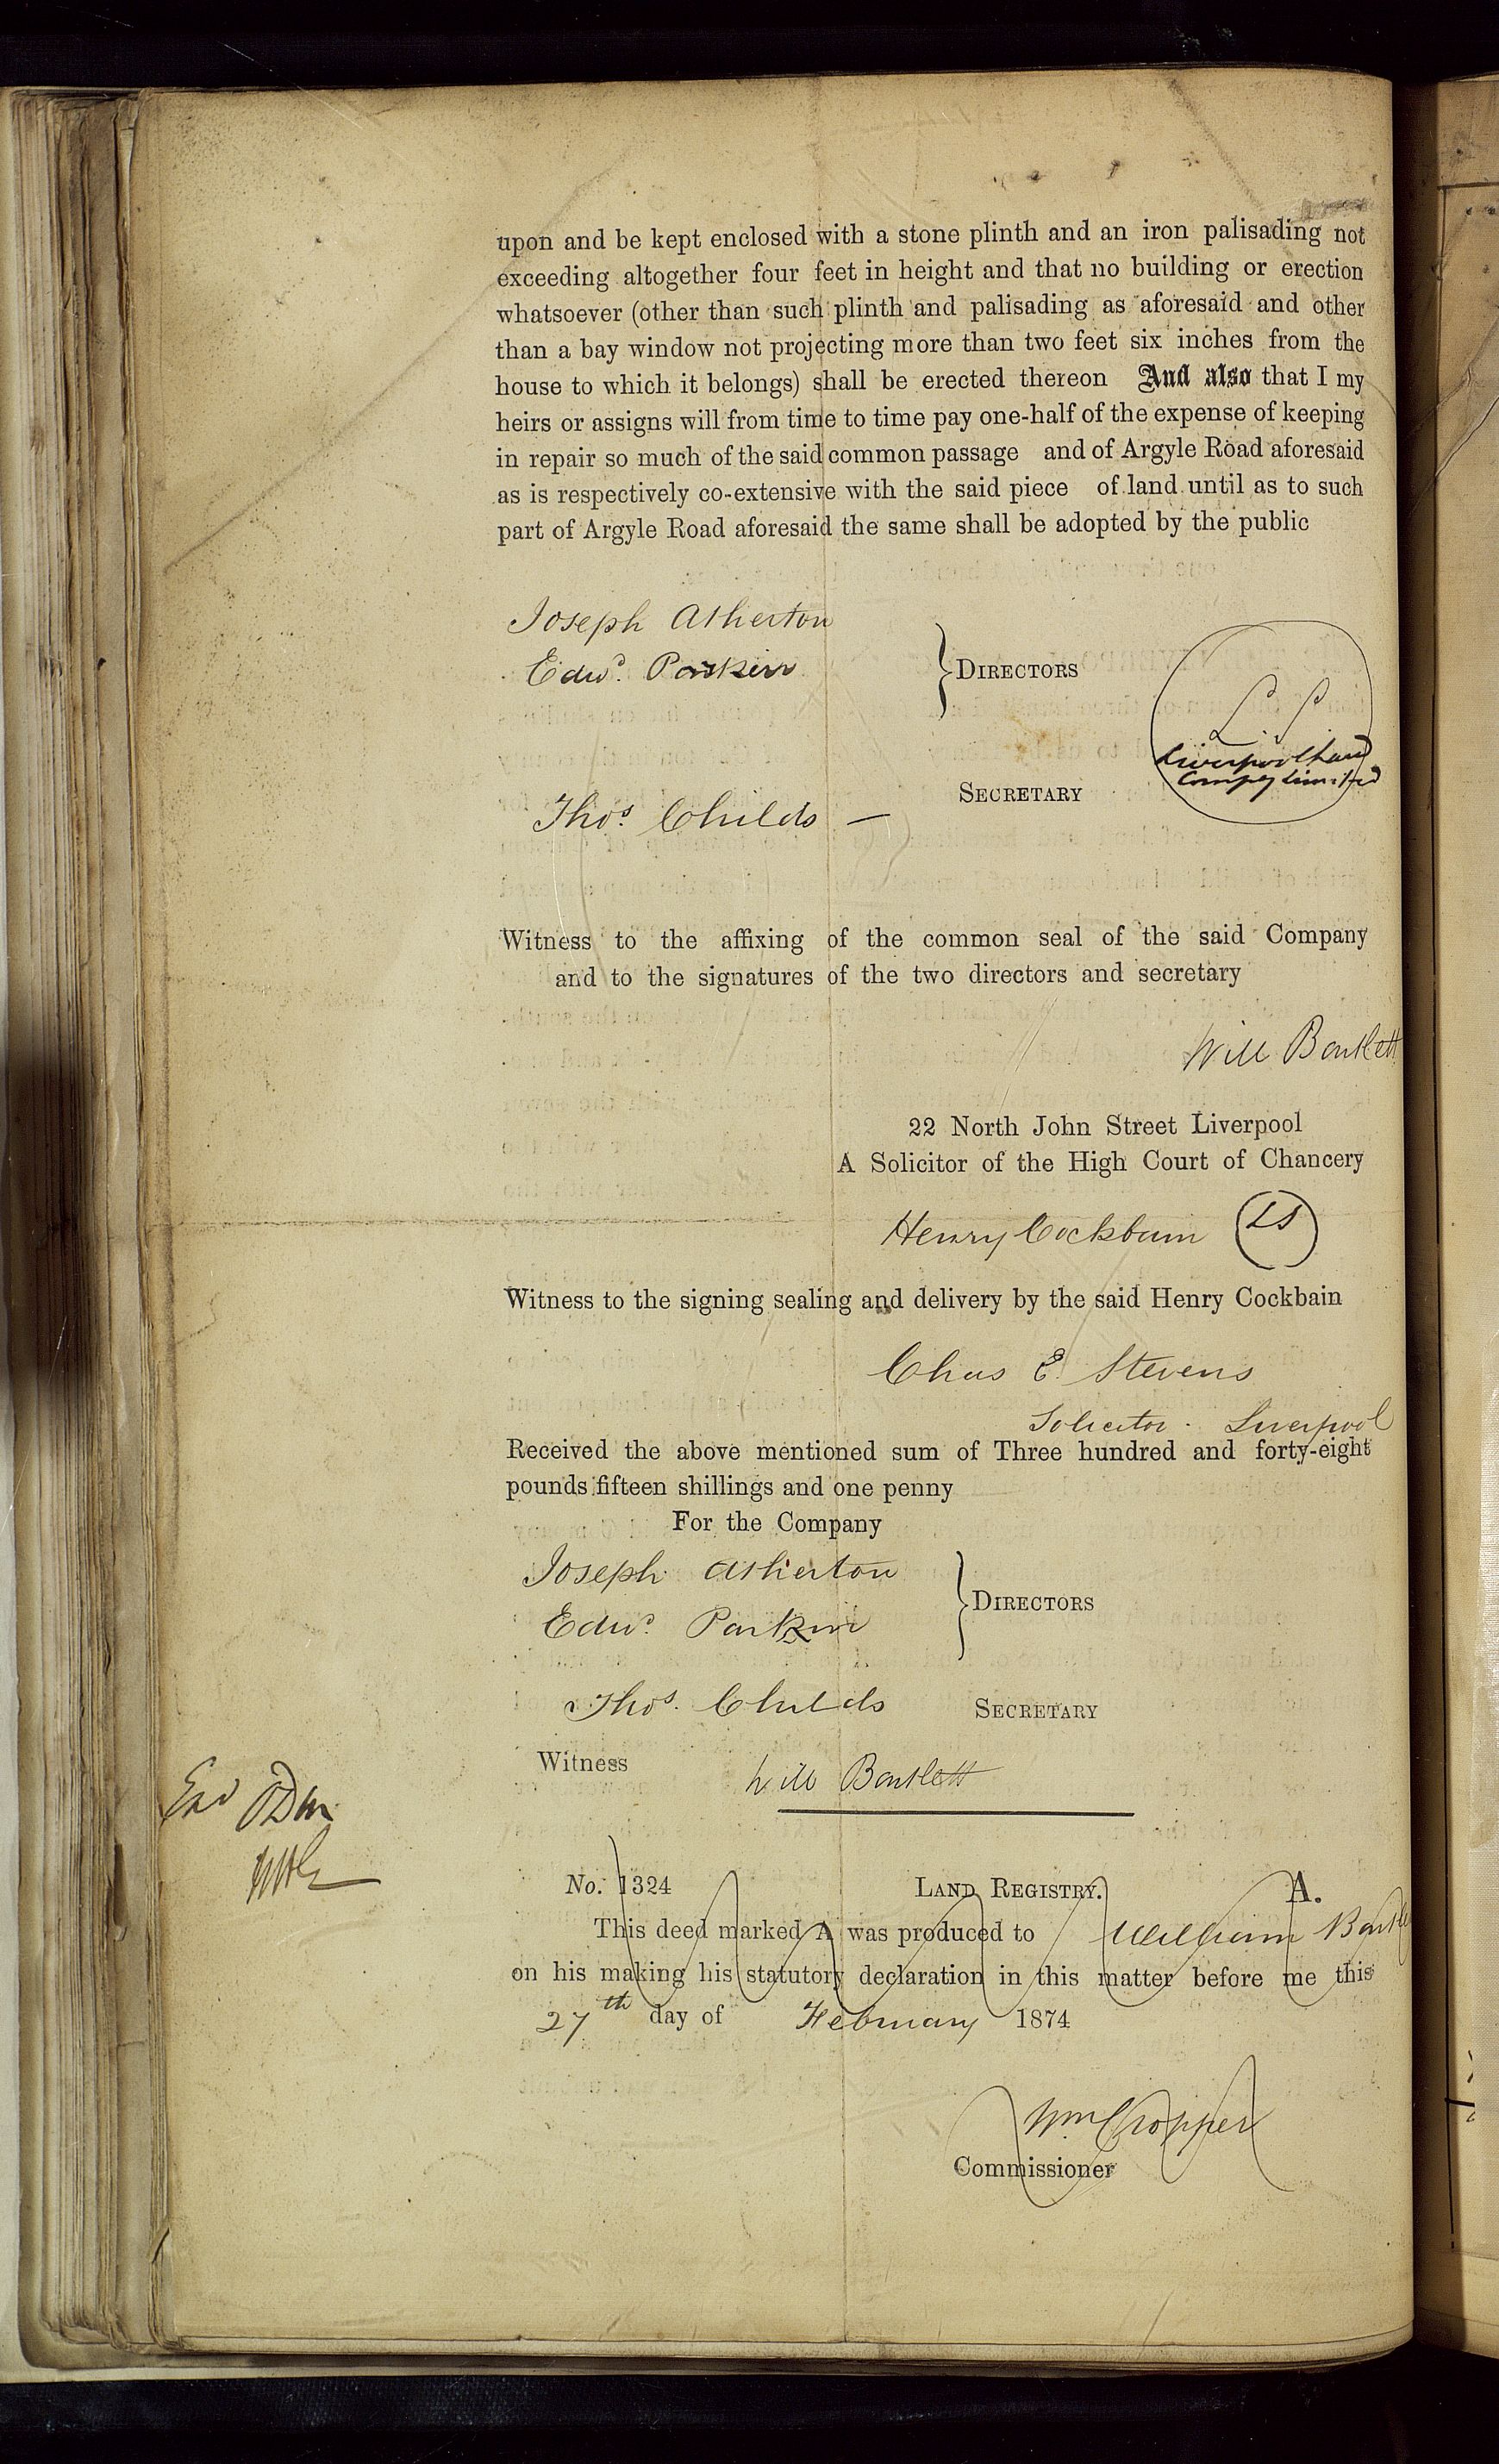 upon and be kept enclosed with a stone plinth and an iron palisading not
exceeding altogether four feet in height and that no building or erection
whatsoever (other than such plinth and palisading as aforesaid and other
than a bay window not projecting more than two feet six inches from the
house to which it belongs) shall be erected thereon And also that I my
heirs or assigns will from time to time pay one-half of the expense of keeping
in repair so much of the said common passage and of Argyle Road aforesaid
as is respectively co-extensive with the said piece of land until as to such
part of Argyle Road aforesaid the same shall be adopted by the public
Joseph Atherton
Edwd. Parkin
} DIRECTORS
L. S
Liverpool Land
Compy Limited
SECRETARY
Thos. Childs —
Witness to the affixing of the common seal of the said Company
and to the signatures of the two directors and secretary
Will Bartlett
22 North John Street Liverpool
A Solicitor of the High Court of Chancery
Henry Cockbain LS
Witness to the signing sealing and delivery by the said Henry Cockbain
Chas E. Stevens
Solicitor. Liverpool
Received the above mentioned sum of Three hundred and forty-eight
pounds fifteen shillings and one penny
For the Company
Joseph Atherton
Edwd. Parkin
} DIRECTORS
Thos. Childs SECRETARY
Witness Will Bartlett
No. 1324 LAND REGISTRY. A.
This deed marked A was produced to William Bartl
on his making his statutory declaration in this matter before me this
27th day of February 1874
Wm Cropper
Commissioner